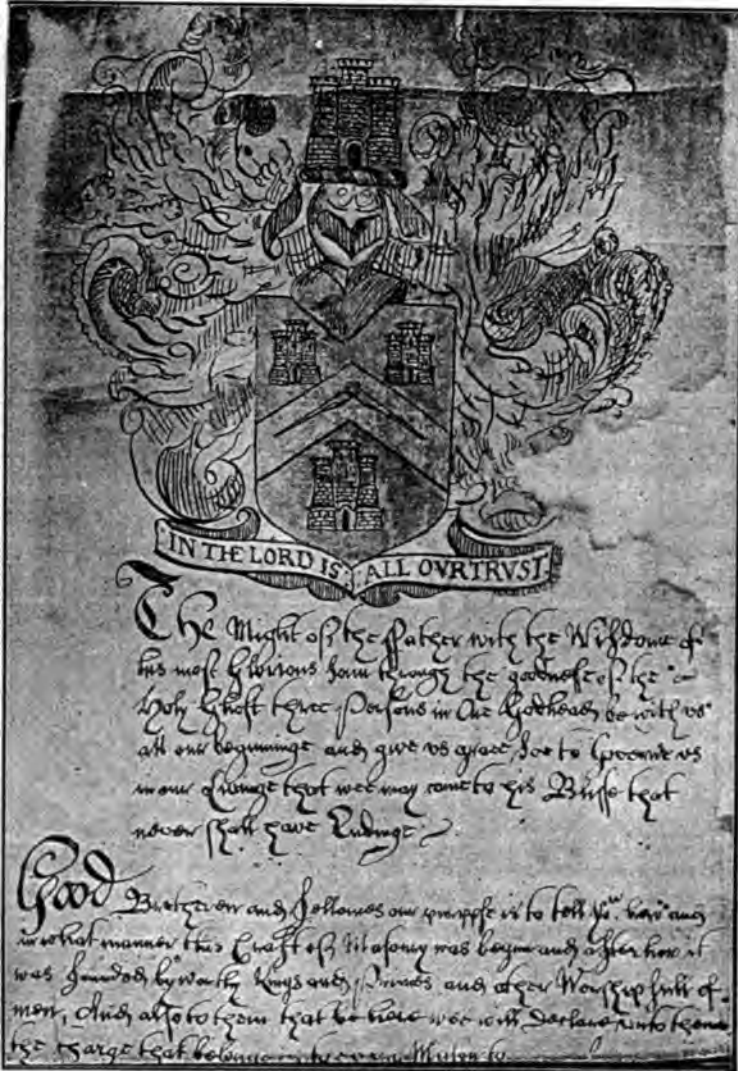 IN THE LORD IS ALL OVR TRVST
The Might of the ffather with the Wisdome of
his most Glorious Sonn through the goodnesse of the
Holy Ghost three Persons in One Godhead be with vs
att our beginninge and give vs grace soe to Governe vs
in our Livinge that wee may come to his Blisse that
never shall have Endinge
Good Bretheren and Fellowes our purpose is to tell you how and
in what manner this Craft of Masonry was begun and after how it
was founded by worthy Kings and Princes and other Worshipfull
men, And also to them that be here wee will declare unto them
the Charge that